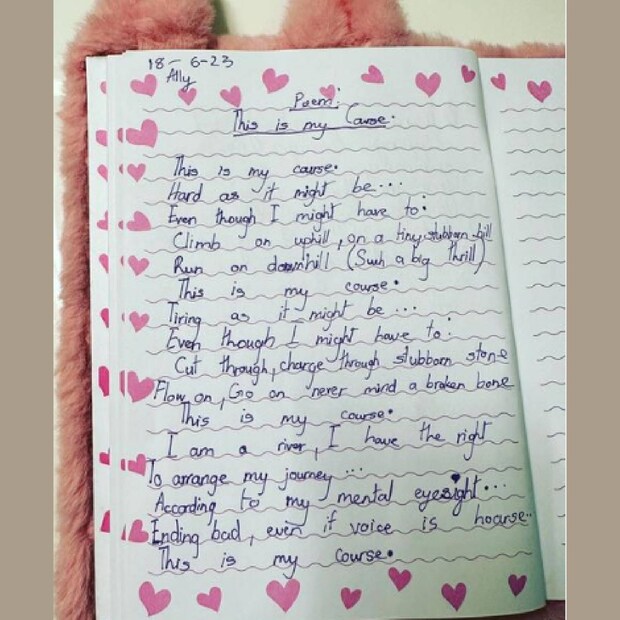 18-6-23
Ally
Poem:
This is my Cause.
This is my cause.
Hard as it might be...
Even though I might have to:
Climb on uphill, on a tiny stubborn hill
Run on downhill (Such a big thrill)
This is my course.
Tiring as it might be...
Even though I might have to:
Cut through, charge through stubborn stone
Flow on, Go on never mind a broken bone
This is my course.
I am a river, I have the right
To arrange my journey...
According to my mental eyesight...
Ending bad, even if voice is hoarse..
This is my course.